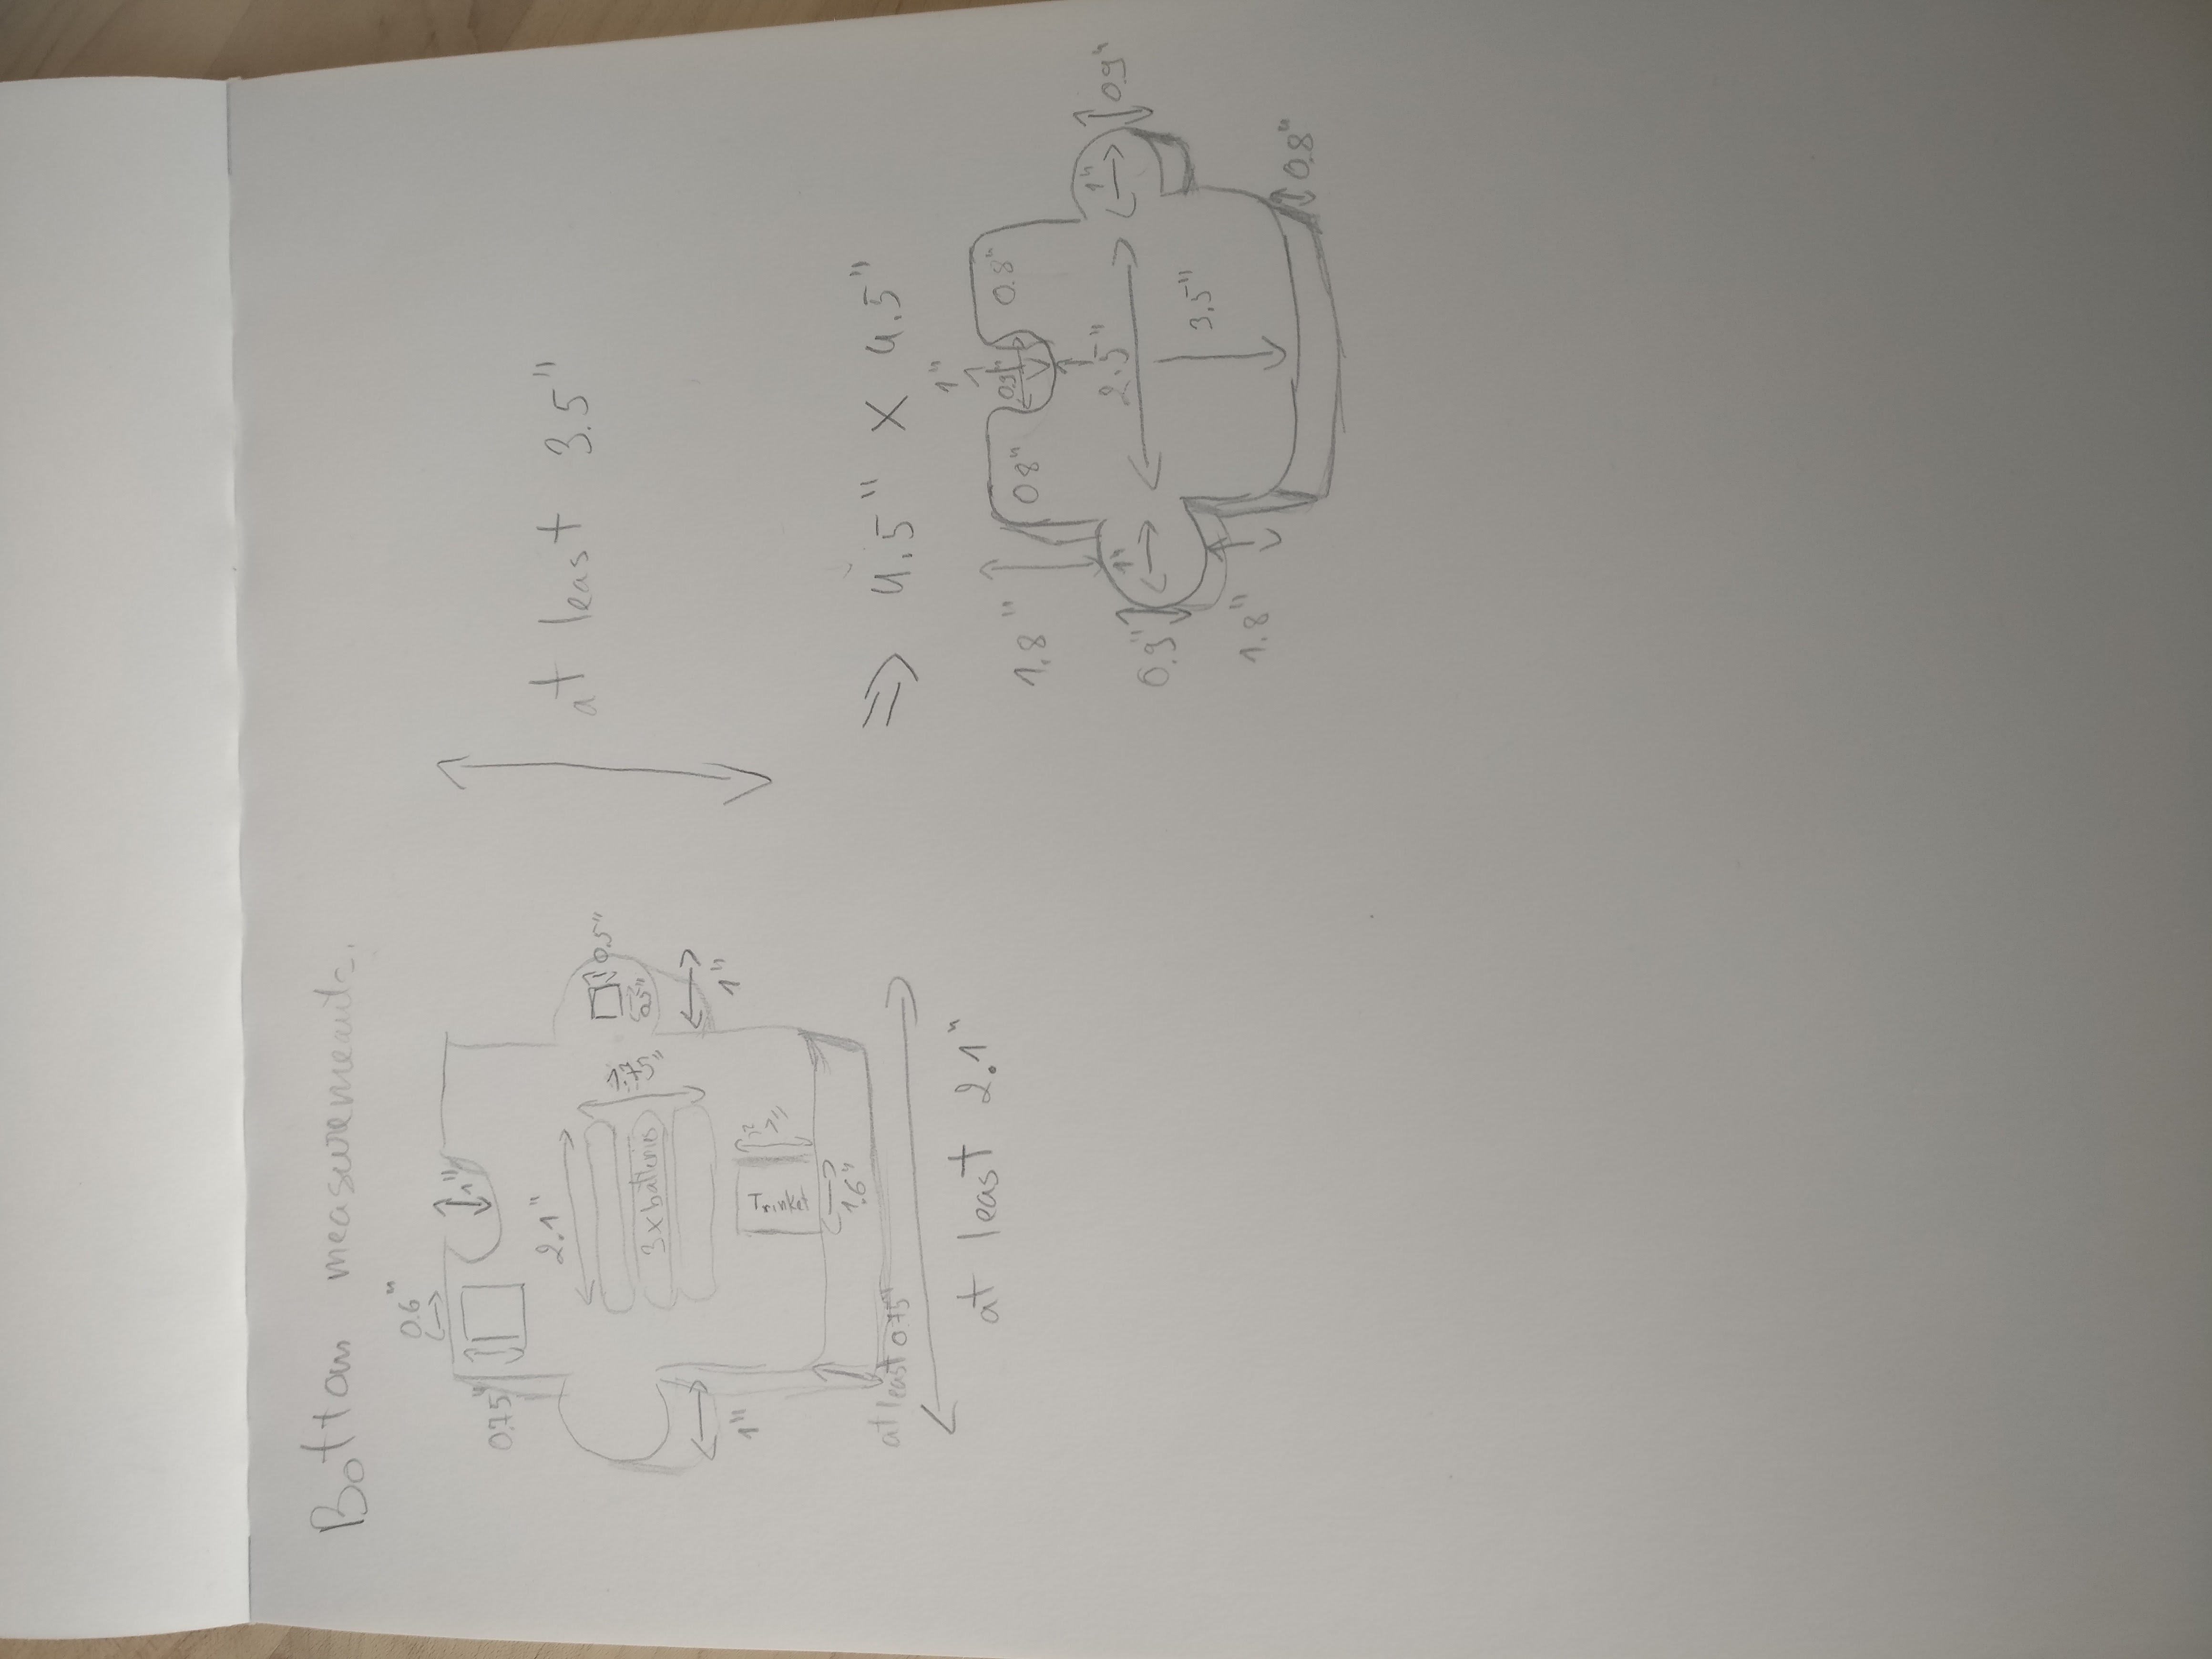 Bottom measurements.
0.6"
1"
0.75"
2.1"
3x batteries
0.5"
0.5"
1"
1"
Trinket
1.6"
at least 0.75"
at least 2.1"
at least 3.5"
=> 4.5" x 4.5"
1"
1.8"
0.8"
0.9"
0.8"
1"
2.5"
1"
0.9"
0.9"
3.5"
1.8"
0.8"